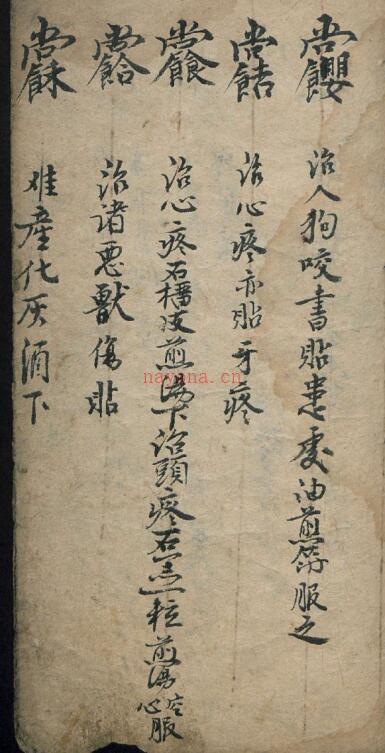 治人狗咬書貼患處油煎符服之
治心疼亦貼牙疼
治心疼石榴皮煎湯下治頭疼石一粒煎湯空心服
治諸惡獸傷貼
难產化灰酒下
nayona.cn